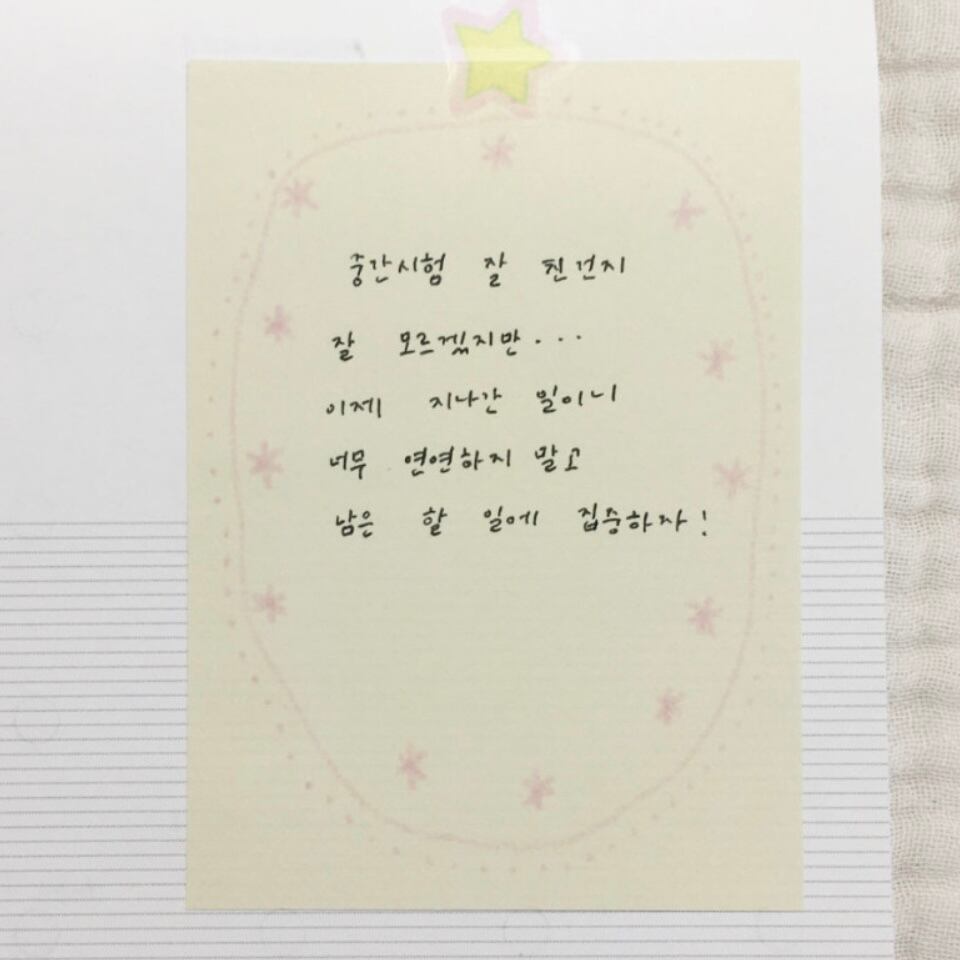 중간시험 잘 친건지
잘 모르겠지만...
이제 지나간 일이니
너무 연연하지 말고
남은 할 일에 집중하자!